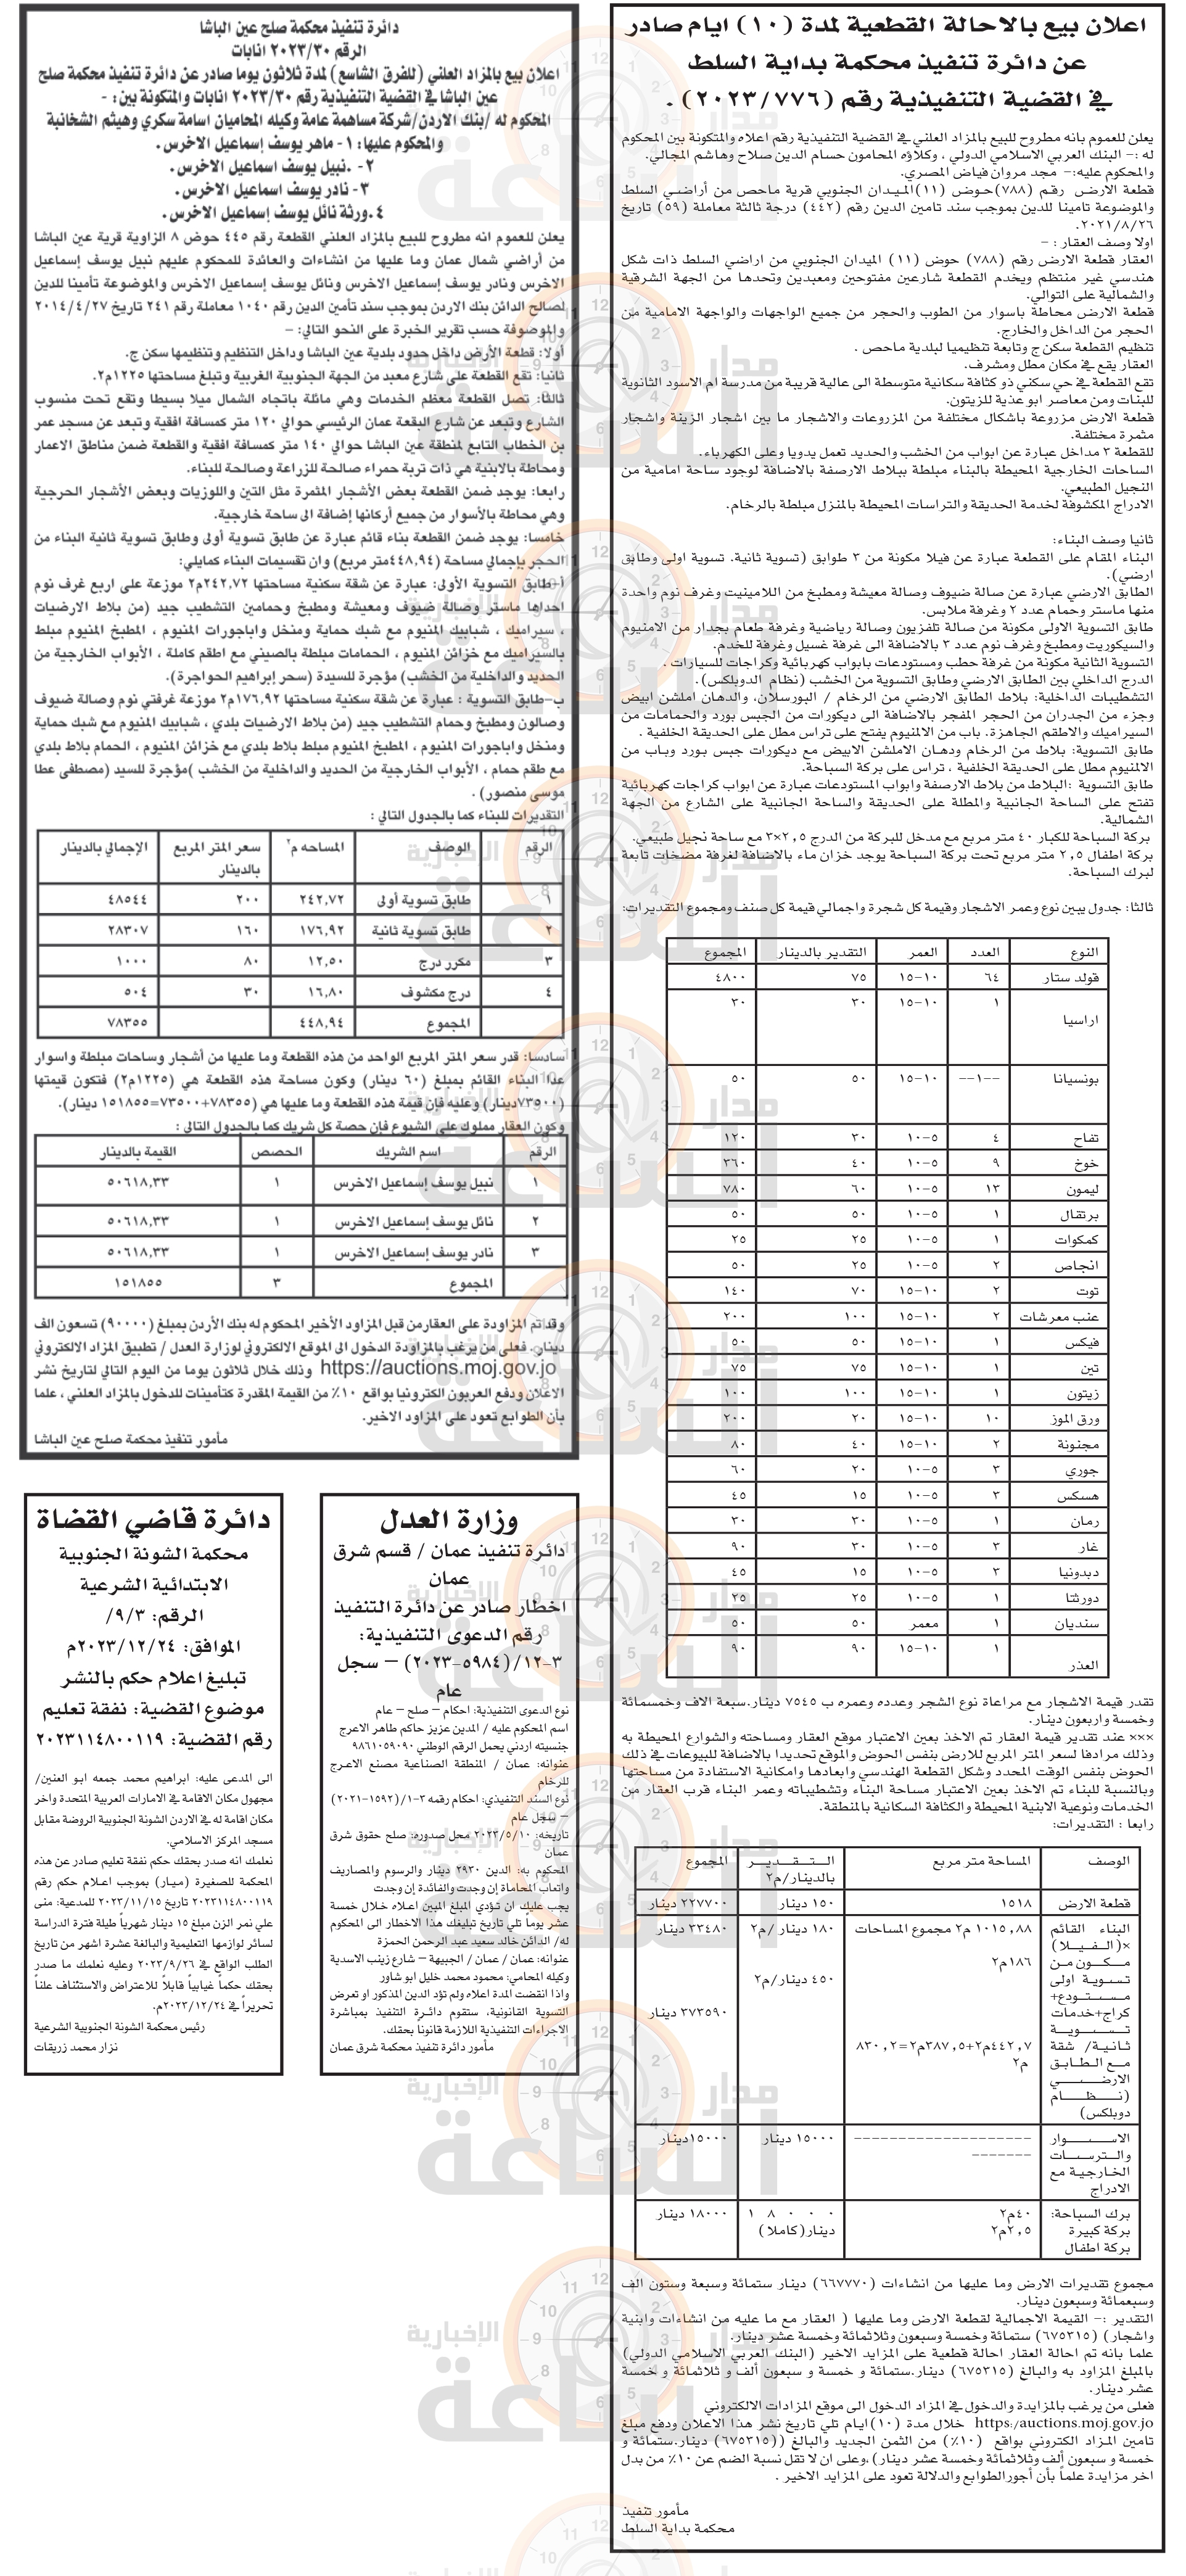 اعلان بيع بالاحالة القطعية لمدة (١٠) ايام صادر
عن دائرة تنفيذ محكمة بداية السلط
في القضية التنفيذية رقم (٢٠٢٣/٧٧٦) .
يعلن للعموم بانه مطروح للبيع بالمزاد العلني في القضية التنفيذية رقم اعلاه والمتكونة بين المحكوم
له :- البنك العربي الاسلامي الدولي ، وكلاؤه المحامون حسام الدين صلاح وهاشم المجالي.
والمحكوم عليه:- مجد مروان فياض المصري.
قطعة الارض رقم (٧٨٨)حوض (١١)الميدان الجنوبي قرية ماحص من أراضي السلط
والموضوعة تامينا للدين بموجب سند تامين الدين رقم (٤٤٢) درجة ثالثة معاملة (٥٩) تاريخ
٢٠٢١/٨/٢٦.
اولا وصف العقار : -
العقار قطعة الارض رقم (٧٨٨) حوض (١١) الميدان الجنوبي من اراضي السلط ذات شكل
هندسي غير منتظم ويخدم القطعة شارعين مفتوحين ومعبدين وتحدها من الجهة الشرقية
والشمالية على التوالي.
قطعة الارض محاطة باسوار من الطوب والحجر من جميع الواجهات والواجهة الامامية من
الحجر من الداخل والخارج.
تنظيم القطعة سكن ج وتابعة تنظيميا لبلدية ماحص .
العقار يقع في مكان مطل ومشرف.
تقع القطعة في حي سكني ذو كثافة سكانية متوسطة الى عالية قريبة من مدرسة ام الاسود الثانوية
للبنات ومن معاصر ابو عذية للزيتون.
قطعة الارض مزروعة باشكال مختلفة من المزروعات والاشجار ما بين اشجار الزينة واشجار
مثمرة مختلفة.
للقطعة ٣ مداخل عبارة عن ابواب من الخشب والحديد تعمل يدويا وعلى الكهرباء.
الساحات الخارجية المحيطة بالبناء مبلطة ببلاط الارصفة بالاضافة لوجود ساحة امامية من
النجيل الطبيعي.
الادراج المكشوفة لخدمة الحديقة والتراسات المحيطة بالمنزل مبلطة بالرخام.
ثانيا وصف البناء:
البناء المقام على القطعة عبارة عن فيلا مكونة من ٣ طوابق (تسوية ثانية. تسوية اولى وطابق
ارضي).
الطابق الارضي عبارة عن صالة ضيوف وصالة معيشة ومطبخ من اللامينيت وغرف نوم واحدة
منها ماستر وحمام عدد ٢ وغرفة ملابس.
طابق التسوية الاولى مكونة من صالة تلفزيون وصالة رياضية وغرفة طعام بجدار من الامنيوم
والسيكوريت ومطبخ وغرف نوم عدد ٣ بالاضافة الى غرفة غسيل وغرفة للخدم.
التسوية الثانية مكونة من غرفة حطب ومستودعات بابواب كهربائية وكراجات للسيارات .
الدرج الداخلي بين الطابق الارضي وطابق التسوية من الخشب (نظام الدوبلكس).
التشطيبات الداخلية: بلاط الطابق الارضي من الرخام / البورسلان، والدهان املشن ابيض
وجزء من الجدران من الحجر المفجر بالاضافة الى ديكورات من الجبس بورد والحمامات من
السيراميك والاطقم الجاهزة. باب من الالمنيوم يفتح على تراس مطل على الحديقة الخلفية .
طابق التسوية: بلاط من الرخام ودهان الاملشن الابيض مع ديكورات جبس بورد وباب من
الالمنيوم مطل على الحديقة الخلفية ، تراس على بركة السباحة.
طابق التسوية :البلاط من بلاط الارصفة وابواب المستودعات عبارة عن ابواب كراجات كهربائية
تفتح على الساحة الجانبية والمطلة على الحديقة والساحة الجانبية على الشارع من الجهة
الشمالية.
بركة السباحة للكبار ٤٠ متر مربع مع مدخل للبركة من الدرج ٢,٥×٣ مع ساحة نجيل طبيعي.
بركة اطفال ٢,٥ متر مربع تحت بركة السباحة يوجد خزان ماء بالاضافة لغرفة مضخات تابعة
لبرك السباحة.
ثالثا: جدول يبين نوع وعمر الاشجار وقيمة كل شجرة واجمالي قيمة كل صنف ومجموع التقديرات:
النوع العدد العمر التقدير بالدينار المجموع
قولد ستار ٦٤ ١٠-١٥ ٧٥ ٤٨٠٠
اراسيا ١ ١٠-١٥ ٣٠ ٣٠
بونسيانا --١-- ١٠-١٥ ٥٠ ٥٠
تفاح ٤ ٥-١٠ ٣٠ ١٢٠
خوخ ٩ ٥-١٠ ٤٠ ٣٦٠
ليمون ١٣ ٥-١٠ ٦٠ ٧٨٠
برتقال ١ ٥-١٠ ٥٠ ٥٠
كمكوات ١ ٥-١٠ ٢٥ ٢٥
انجاص ٢ ٥-١٠ ٢٥ ٥٠
توت ٢ ١٠-١٥ ٧٠ ١٤٠
عنب معرشات ٢ ١٠-١٥ ١٠٠ ٢٠٠
فيكس ١ ١٠-١٥ ٥٠ ٥٠
تين ١ ١٠-١٥ ٧٥ ٧٥
زيتون ١ ١٠-١٥ ١٠٠ ١٠٠
ورق الموز ١٠ ١٠-١٥ ٢٠ ٢٠٠
مجنونة ٢ ١٠-١٥ ٤٠ ٨٠
جوري ٣ ٥-١٠ ٢٠ ٦٠
هسكس ٣ ٥-١٠ ١٥ ٤٥
رمان ١ ٥-١٠ ٣٠ ٣٠
غار ٣ ٥-١٠ ٣٠ ٩٠
ديدونيا ٣ ٥-١٠ ١٥ ٤٥
دورنتا ١ ٥-١٠ ٢٥ ٢٥
سنديان ١ معمر ٥٠ ٥٠
العذر ١ ١٠-١٥ ٩٠ ٩٠
تقدر قيمة الاشجار مع مراعاة نوع الشجر وعدده وعمره ب ٧٥٤٥ دينار.سبعة الاف وخمسمائة
وخمسة واربعون دينار.
××× عند تقدير قيمة العقار تم الاخذ بعين الاعتبار موقع العقار ومساحته والشوارع المحيطة به
وذلك مرادفا لسعر المتر المربع للارض بنفس الحوض والموقع تحديدا بالاضافة للبيوعات في ذلك
الحوض بنفس الوقت المحدد وشكل القطعة الهندسي وابعادها وامكانية الاستفادة من مساحتها
وبالنسبة للبناء تم الاخذ بعين الاعتبار مساحة البناء وتشطيباته وعمر البناء قرب العقار من
الخدمات ونوعية الابنية المحيطة والكثافة السكانية بالمنطقة.
رابعا : التقديرات:
الوصف المساحة متر مربع التقدير بالدينار/م٢ المجموع
قطعة الارض ١٥١٨ ١٥٠ دينار ٢٢٧٧٠٠ دينار
البناء القائم ١٠١٥,٨٨ م٢ مجموع المساحات ١٨٠ دينار /م٢ ٣٣٤٨٠ دينار
×(الفيلا)
مكون من ١٨٦م٢
تسوية اولى ٤٥٠ دينار/م٢
مستودع+
كراج+خدمات ٣٧٣٥٩٠ دينار
تسوية
ثانية/ شقة ٤٤٢,٧م٢+٣٨٧,٥م٢=٨٣٠,٢
مع الطابق م٢
الارضي
(نظام
دوبلكس)
الاسوار -------------------- ١٥٠٠٠ دينار ١٥٠٠٠دينار
والترسات -------
الخارجية مع
الادراج
برك السباحة: ٤٠م٢ ١٨٠٠٠ ١٨٠٠٠ دينار
بركة كبيرة ٢,٥م٢ دينار(كاملا)
بركة اطفال
مجموع تقديرات الارض وما عليها من انشاءات (٦٦٧٧٧٠) دينار ستمائة وسبعة وستون الف
وسبعمائة وسبعون دينار.
التقدير :- القيمة الاجمالية لقطعة الارض وما عليها ( العقار مع ما عليه من انشاءات وابنية
واشجار) (٦٧٥٣١٥) ستمائة وخمسة وسبعون وثلاثمائة وخمسة عشر دينار.
علما بانه تم احالة العقار احالة قطعية على المزايد الاخير (البنك العربي الاسلامي الدولي)
بالمبلغ المزاود به والبالغ (٦٧٥٣١٥) دينار.ستمائة و خمسة و سبعون ألف و ثلاثمائة و خمسة
عشر دينار.
فعلى من يرغب بالمزايدة والدخول في المزاد الدخول الى موقع المزادات الالكتروني
https:/auctions.moj.gov.jo خلال مدة (١٠)ايام تلي تاريخ نشر هذا الاعلان ودفع مبلغ
تامين المزاد الكتروني بواقع (١٠٪) من الثمن الجديد والبالغ ((٦٧٥٣١٥) دينار.ستمائة و
خمسة و سبعون ألف وثلاثمائة وخمسة عشر دينار) .وعلى ان لا تقل نسبة الضم عن ١٠٪ من بدل
اخر مزايدة علماً بأن أجورالطوابع والدلالة تعود على المزايد الاخير .
مأمور تنفيذ
محكمة بداية السلط
دائرة تنفيذ محكمة صلح عين الباشا
الرقم ٢٠٢٣/٣٠ انابات
اعلان بيع بالمزاد العلني (للفرق الشاسع) لمدة ثلاثون يوما صادر عن دائرة تنفيذ محكمة صلح
عين الباشا في القضية التنفيذية رقم ٢٠٢٣/٣٠ انابات والمتكونة بين: -
المحكوم له /بنك الاردن/شركة مساهمة عامة وكيله المحاميان اسامة سكري وهيثم الشخانبة
والمحكوم عليها: ١- ماهر يوسف إسماعيل الاخرس .
٢- .نبيل يوسف اسماعيل الاخرس .
٣- نادر يوسف اسماعيل الاخرس .
٤ .ورثة نائل يوسف إسماعيل الاخرس .
يعلن للعموم انه مطروح للبيع بالمزاد العلني القطعة رقم ٤٤٥ حوض ٨ الزاوية قرية عين الباشا
من أراضي شمال عمان وما عليها من انشاءات والعائدة للمحكوم عليهم نبيل يوسف إسماعيل
الاخرس ونادر يوسف إسماعيل الاخرس ونائل يوسف إسماعيل الاخرس والموضوعة تأمينا للدين
لصالح الدائن بنك الاردن بموجب سند تأمين الدين رقم ١٠٤٠ معاملة رقم ٢٤١ تاريخ ٢٠١٤/٤/٢٧
والموصوفة حسب تقرير الخبرة على النحو التالي: -
أولا: قطعة الأرض داخل حدود بلدية عين الباشا وداخل التنظيم وتنظيمها سكن ج.
ثانيا: تقع القطعة على شارع معبد من الجهة الجنوبية الغربية وتبلغ مساحتها ١٢٢٥م٢.
ثالثا: تصل القطعة معظم الخدمات وهي مائلة باتجاه الشمال ميلا بسيطا وتقع تحت منسوب
الشارع وتبعد عن شارع البقعة عمان الرئيسي حوالي ١٢٠ متر كمسافة افقية وتبعد عن مسجد عمر
بن الخطاب التابع لمنطقة عين الباشا حوالي ١٤٠ متر كمسافة افقية والقطعة ضمن مناطق الاعمار
ومحاطة بالابنية هي ذات تربة حمراء صالحة للزراعة وصالحة للبناء.
رابعا: يوجد ضمن القطعة بعض الأشجار المثمرة مثل التين واللوزيات وبعض الأشجار الحرجية
وهي محاطة بالأسوار من جميع أركانها إضافة الى ساحة خارجية.
خامسا: يوجد ضمن القطعة بناء قائم عبارة عن طابق تسوية أولى وطابق تسوية ثانية البناء من
الحجر بإجمالي مساحة (٤٤٨,٩٤متر مربع) وان تقسيمات البناء كمايلي:
أ-طابق التسوية الأولى: عبارة عن شقة سكنية مساحتها ٢٤٢,٧٢م٢ موزعة على اربع غرف نوم
احداها ماستر وصالة ضيوف ومعيشة ومطبخ وحمامين التشطيب جيد (من بلاط الارضيات
، سيراميك ، شبابيك المنيوم مع شبك حماية ومنخل واباجورات المنيوم ، المطبخ المنيوم مبلط
بالسيراميك مع خزائن المنيوم ، الحمامات مبلطة بالصيني مع اطقم كاملة ، الأبواب الخارجية من
الحديد والداخلية من الخشب) مؤجرة للسيدة (سحر إبراهيم الحواجرة).
ب-طابق التسوية : عبارة عن شقة سكنية مساحتها ١٧٦,٩٢م٢ موزعة غرفتي نوم وصالة ضيوف
وصالون ومطبخ وحمام التشطيب جيد (من بلاط الارضيات بلدي ، شبابيك المنيوم مع شبك حماية
ومنخل واباجورات المنيوم ، المطبخ المنيوم مبلط بلاط بلدي مع خزائن المنيوم ، الحمام بلاط بلدي
مع طقم حمام ، الأبواب الخارجية من الحديد والداخلية من الخشب )مؤجرة للسيد (مصطفى عطا
موسى منصور) .
التقديرات للبناء كما بالجدول التالي :
الرقم الوصف المساحه م٢ سعر المتر المربع بالدينار الإجمالي بالدينار
١ طابق تسوية أولى ٢٤٢,٧٢ ٢٠٠ ٤٨٥٤٤
٢ طابق تسوية ثانية ١٧٦,٩٢ ١٦٠ ٢٨٣٠٧
٣ مكرر درج ١٢,٥٠ ٨٠ ١٠٠٠
٤ درج مكشوف ١٦,٨٠ ٣٠ ٥٠٤
المجموع ٤٤٨,٩٤ ٧٨٣٥٥
سادسا: قدر سعر المتر المربع الواحد من هذه القطعة وما عليها من أشجار وساحات مبلطة واسوار
عدا البناء القائم بمبلغ (٦٠ دينار) وكون مساحة هذه القطعة هي (١٢٢٥م٢) فتكون قيمتها
(٧٣٥٠٠دينار) وعليه فإن قيمة هذه القطعة وما عليها هي (٧٨٣٥٥+٧٣٥٠٠=١٥١٨٥٥ دينار).
وكون العقار مملوك على الشيوع فإن حصة كل شريك كما بالجدول التالي :
الرقم اسم الشريك الحصص القيمة بالدينار
١ نبيل يوسف إسماعيل الاخرس ١ ٥٠٦١٨,٣٣
٢ نائل يوسف إسماعيل الاخرس ١ ٥٠٦١٨,٣٣
٣ نادر يوسف إسماعيل الاخرس ١ ٥٠٦١٨,٣٣
المجموع ٣ ١٥١٨٥٥
وقد تم المزاودة على العقارمن قبل المزاود الأخير المحكوم له بنك الأردن بمبلغ (٩٠٠٠٠) تسعون الف
دينار. فعلى من يرغب بالمزاودة الدخول الى الموقع الالكتروني لوزارة العدل / تطبيق المزاد الالكتروني
https://auctions.moj.gov.jo وذلك خلال ثلاثون يوما من اليوم التالي لتاريخ نشر
الاعلان ودفع العربون الكترونيا بواقع ١٠٪ من القيمة المقدرة كتأمينات للدخول بالمزاد العلني ، علما
بأن الطوابع تعود على المزاود الاخير.
مأمور تنفيذ محكمة صلح عين الباشا
وزارة العدل
دائرة تنفيذ عمان / قسم شرق
عمان
اخطار صادر عن دائرة التنفيذ
رقم الدعوى التنفيذية:
٣-١٢/(٥٩٨٤-٢٠٢٣) – سجل
عام
نوع الدعوى التنفيذية: احكام – صلح – عام
اسم المحكوم عليه / المدين عزيز حاكم طاهر الاعرج
جنسيته اردني يحمل الرقم الوطني ٩٨٦١٠٥٩٠٩٠
عنوانه: عمان / المنطقة الصناعية مصنع الاعرج
للرخام
نوع السند التنفيذي: احكام رقمه ٣-١/(١٥٩٢-٢٠٢١)
– سجل عام
تاريخه: ٢٠٢٣/٥/١٠ محل صدوره: صلح حقوق شرق
عمان
المحكوم به: الدين ٢٩٣٠ دينار والرسوم والمصاريف
واتعاب المحاماة إن وجدت والفائدة إن وجدت
يجب عليك ان تؤدي المبلغ المبين اعلاه خلال خمسة
عشر يوماً تلي تاريخ تبليغك هذا الاخطار الى المحكوم
له/ الدائن خالد سعيد عبد الرحمن الحمزة
عنوانه: عمان / عمان / الجبيهة – شارع زينب الاسدية
وكيله المحامي: محمود محمد خليل ابو شاور
واذا انقضت المدة اعلاه ولم تؤد الدين المذكور او تعرض
التسوية القانونية، ستقوم دائرة التنفيذ بمباشرة
الاجراءات التنفيذية اللازمة قانوناً بحقك.
مأمور دائرة تنفيذ محكمة شرق عمان
دائرة قاضي القضاة
محكمة الشونة الجنوبية
الابتدائية الشرعية
الرقم: ٩/٣/
الموافق: ٢٠٢٣/١٢/٢٤م
تبليغ اعلام حكم بالنشر
موضوع القضية: نفقة تعليم
رقم القضية: ٢٠٢٣١١٤٨٠٠١١٩
الى المدعى عليه: ابراهيم محمد جمعه ابو العنين/
مجهول مكان الاقامة في الامارات العربية المتحدة واخر
مكان اقامة له في الاردن الشونة الجنوبية الروضة مقابل
مسجد المركز الاسلامي.
نعلمك انه صدر بحقك حكم نفقة تعليم صادر عن هذه
المحكمة للصغيرة (ميار) بموجب اعلام حكم رقم
٢٠٢٣١١٤٨٠٠١١٩ تاريخ ٢٠٢٣/١١/١٥ للمدعية: منى
علي نمر الزن مبلغ ١٥ دينار شهرياً طيلة فترة الدراسة
لسائر لوازمها التعليمية والبالغة عشرة اشهر من تاريخ
الطلب الواقع في ٢٠٢٣/٩/٢٦ وعليه نعلمك ما صدر
بحقك حكماً غيابياً قابلاً للاعتراض والاستئناف علناً
تحريراً في ٢٠٢٣/١٢/٢٤م.
رئيس محكمة الشونة الجنوبية الشرعية
نزار محمد زريقات
مدار
الساعة
الإخبارية